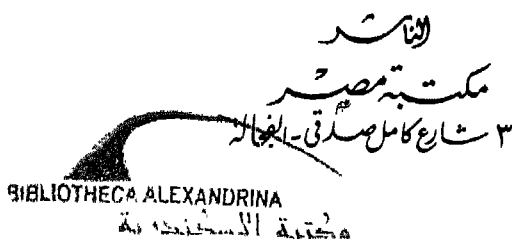 الناشر
مكتبة مصر
٣ شارع كامل صدقى - الفجالة
BIBLIOTHECA ALEXANDRINA
مكتبة الاسكندرية